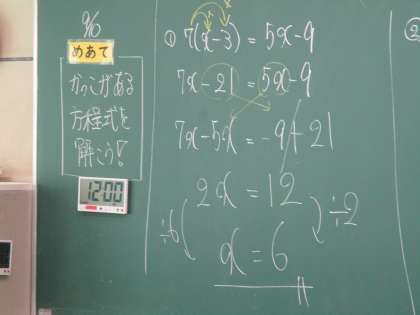 9/6
めあて
かっこがある
方程式を
解こう!
12:00
① 7(x-3) = 5x-9
7x-21 = 5x-9
7x-5x = -9+21
2x = 12
÷2
x = 6
②